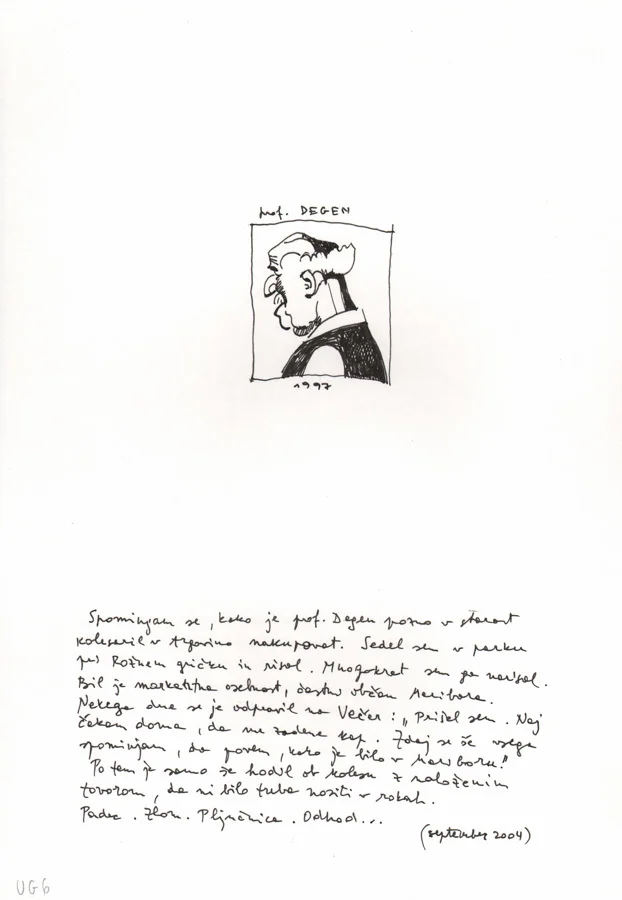 prof. DEGEN
1997
Spominjam se, kako je prof. Degen pozno v starost
kolesaril v trgovino nakupovat. Sedel sem v parku
pri Rožnem gričku in risal. Mnogokrat sem ga narisal.
Bil je markantna osebnost, častni občan Maribora.
Nekega dne se je odpravil na Večer: "Prišel sem. Naj
čakam doma, da me zadene kap. Zdaj se še vsega
spominjam, da povem, kako je bilo v Mariboru."
Po tem je samo še hodil ob kolesu z naloženim
tovorom, da ni bilo treba nositi v rokah.
Padec. Zlom. Pljučnica. Odhod...
(september 2004)
UG6